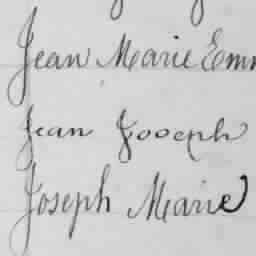 Jean Marie Emm
Jean Jooseph
Joseph Marie